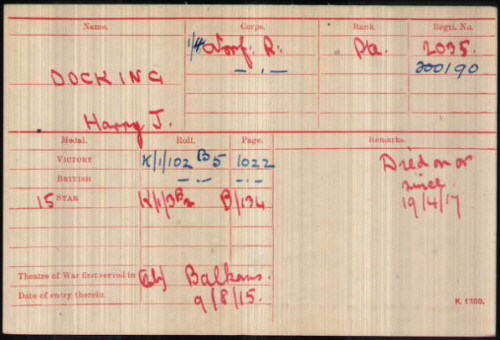 Name. Corps. Rank. Regtl. No.
1/4 Norf. R. Pte. 2035.
DOCKING — " — 200190
Harry J.
Medal. Roll. Page. Remarks.
VICTORY K/1/102 B5 1022 Died on or
BRITISH — " — — " — since
15 STAR K/1/3B2 B/134 19/4/17
Theatre of War first served in Balkans.
Date of entry therein 9/8/15.
K 1380.